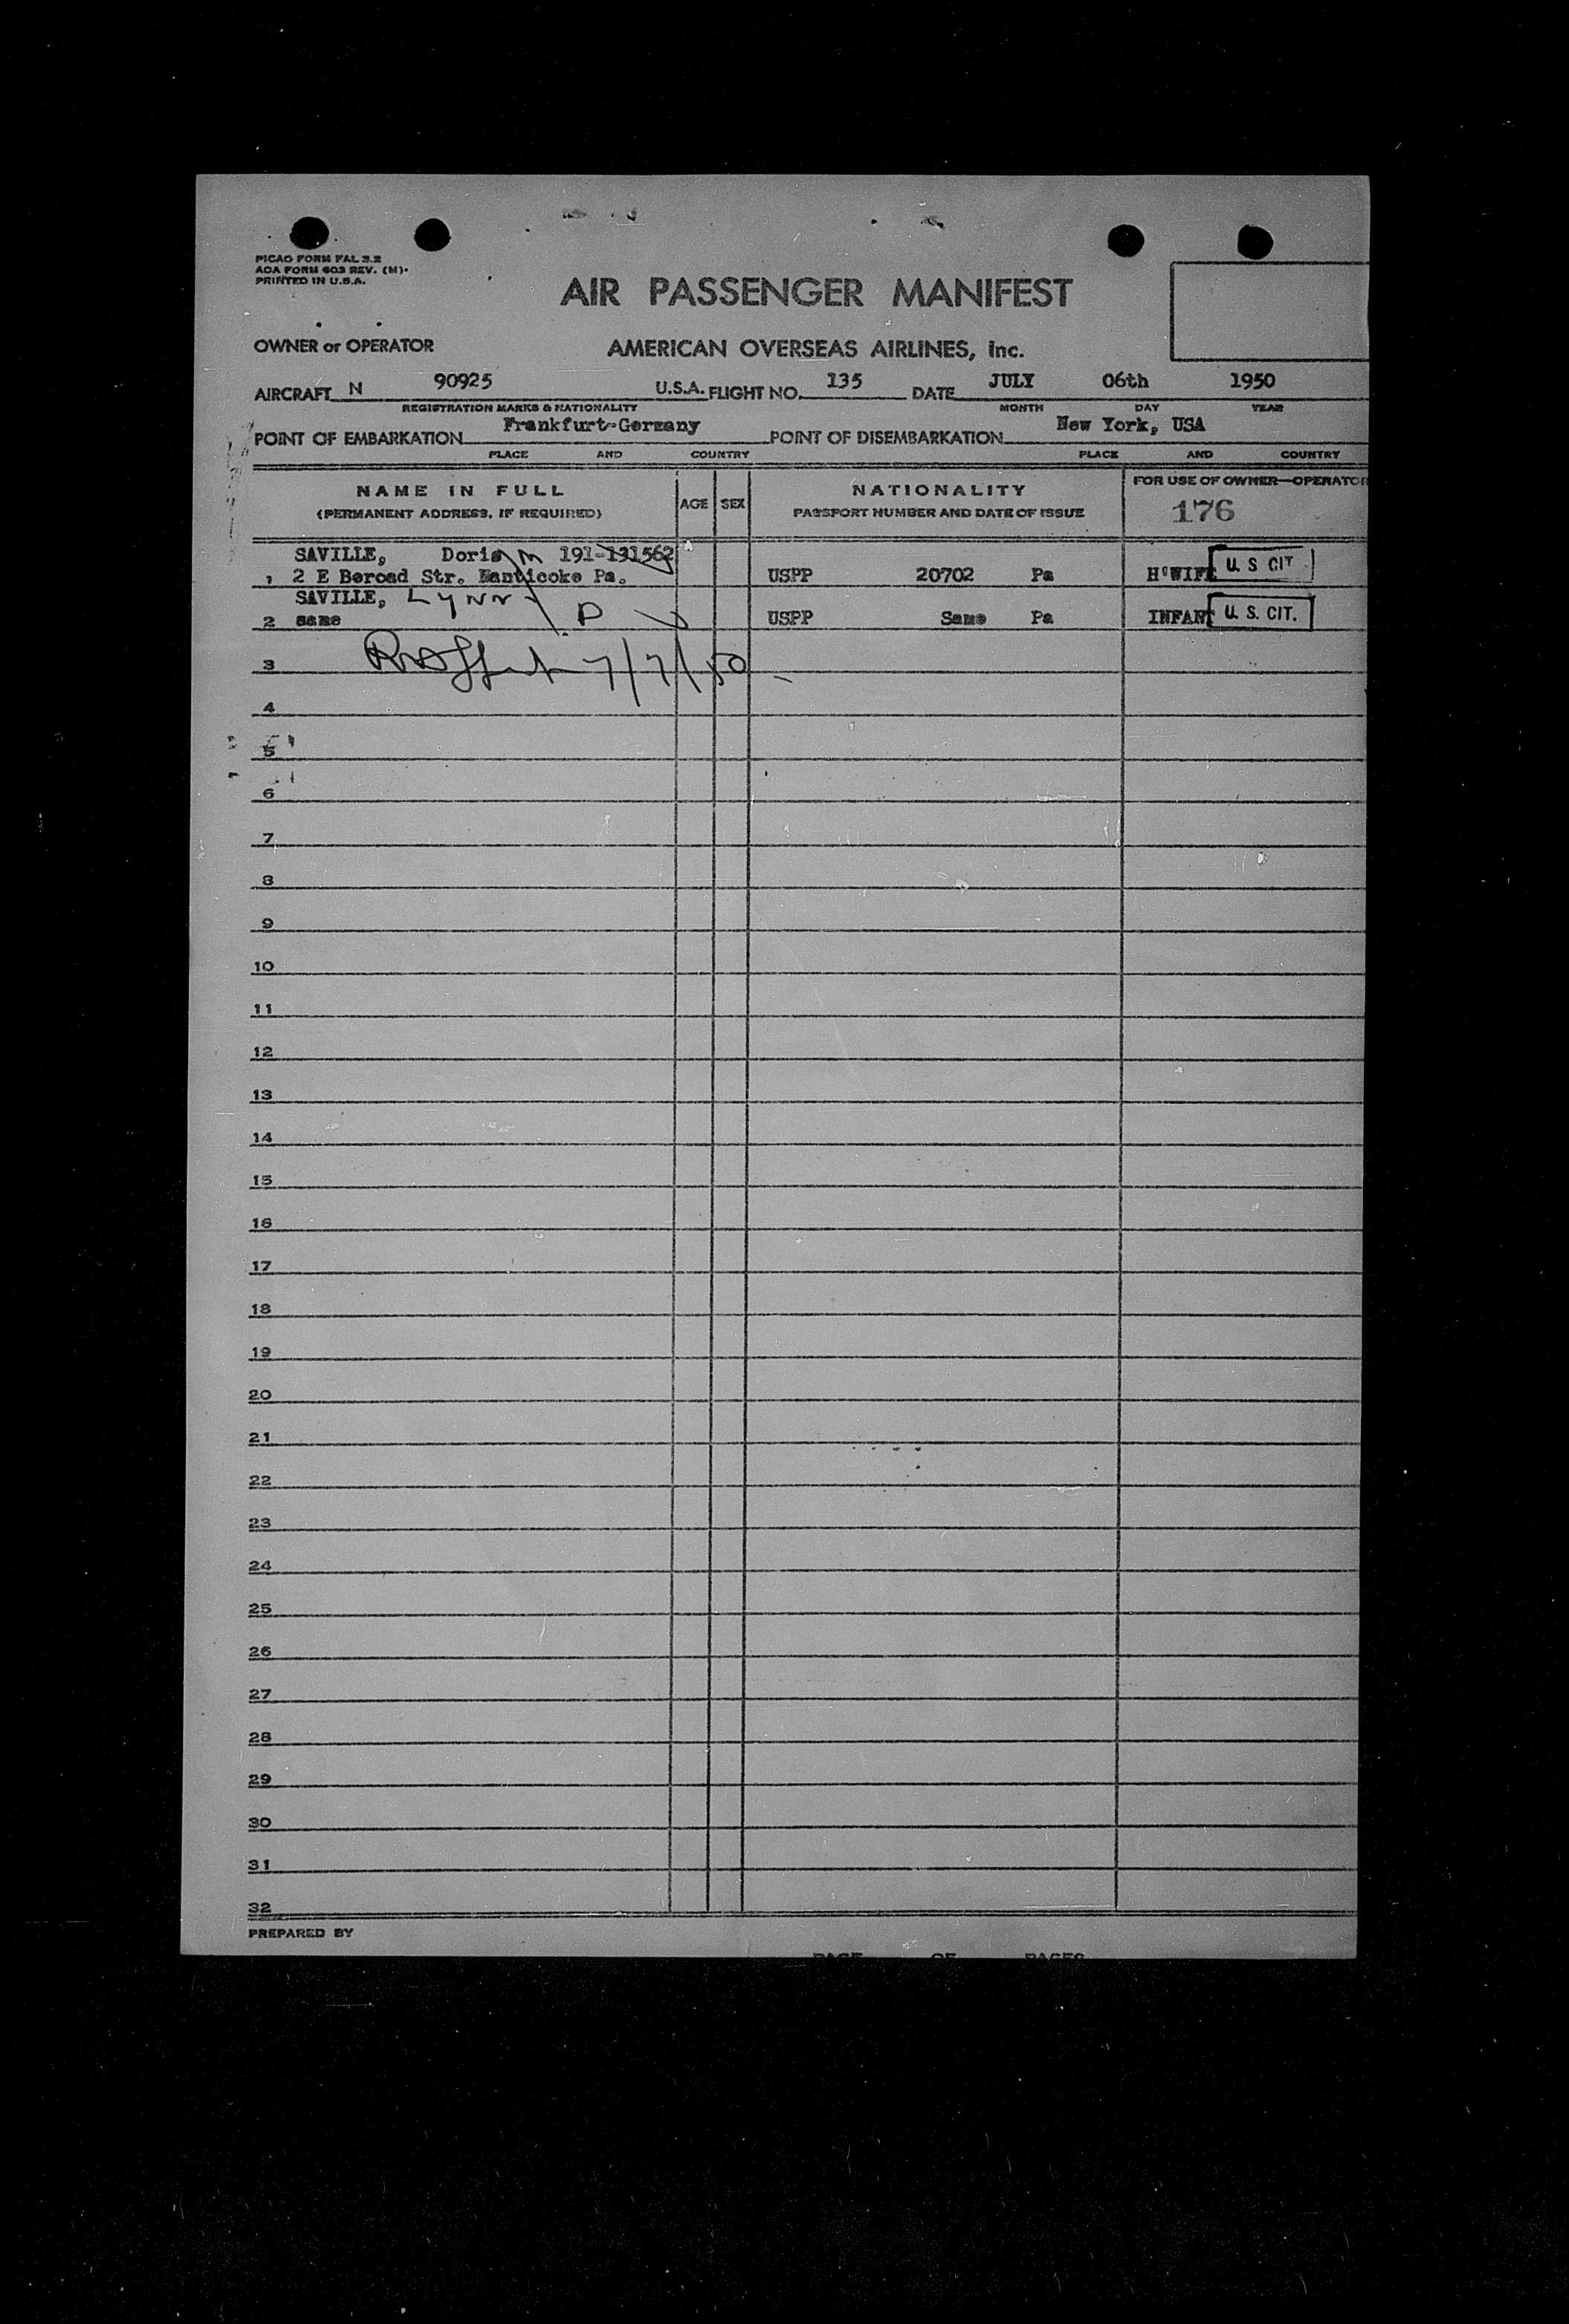 PICAO FORM FAL 3.2
AOA FORM 603 REV. (M)
PRINTED IN U.S.A.
AIR PASSENGER MANIFEST
OWNER or OPERATOR AMERICAN OVERSEAS AIRLINES, Inc.
AIRCRAFT N 90925 U.S.A. FLIGHT NO. 135 DATE JULY 06th 1950
REGISTRATION MARKS & NATIONALITY MONTH DAY YEAR
POINT OF EMBARKATION Frankfurt-Germany POINT OF DISEMBARKATION New York, USA
PLACE AND COUNTRY PLACE AND COUNTRY
NAME IN FULL AGE SEX NATIONALITY FOR USE OF OWNER—OPERATOR
(PERMANENT ADDRESS, IF REQUIRED) PASSPORT NUMBER AND DATE OF ISSUE 176
SAVILLE, Doris M 191-131562
1 2 E Beroad Str. Nanticoke Pa. USPP 20702 Pa H'WIFE U. S CIT
SAVILLE, Lynn D
2 same USPP Same Pa INFANT U. S. CIT.
3 7/7/50
4
5
6
7
8
9
10
11
12
13
14
15
16
17
18
19
20
21
22
23
24
25
26
27
28
29
30
31
32
PREPARED BY
PAGE OF PAGES